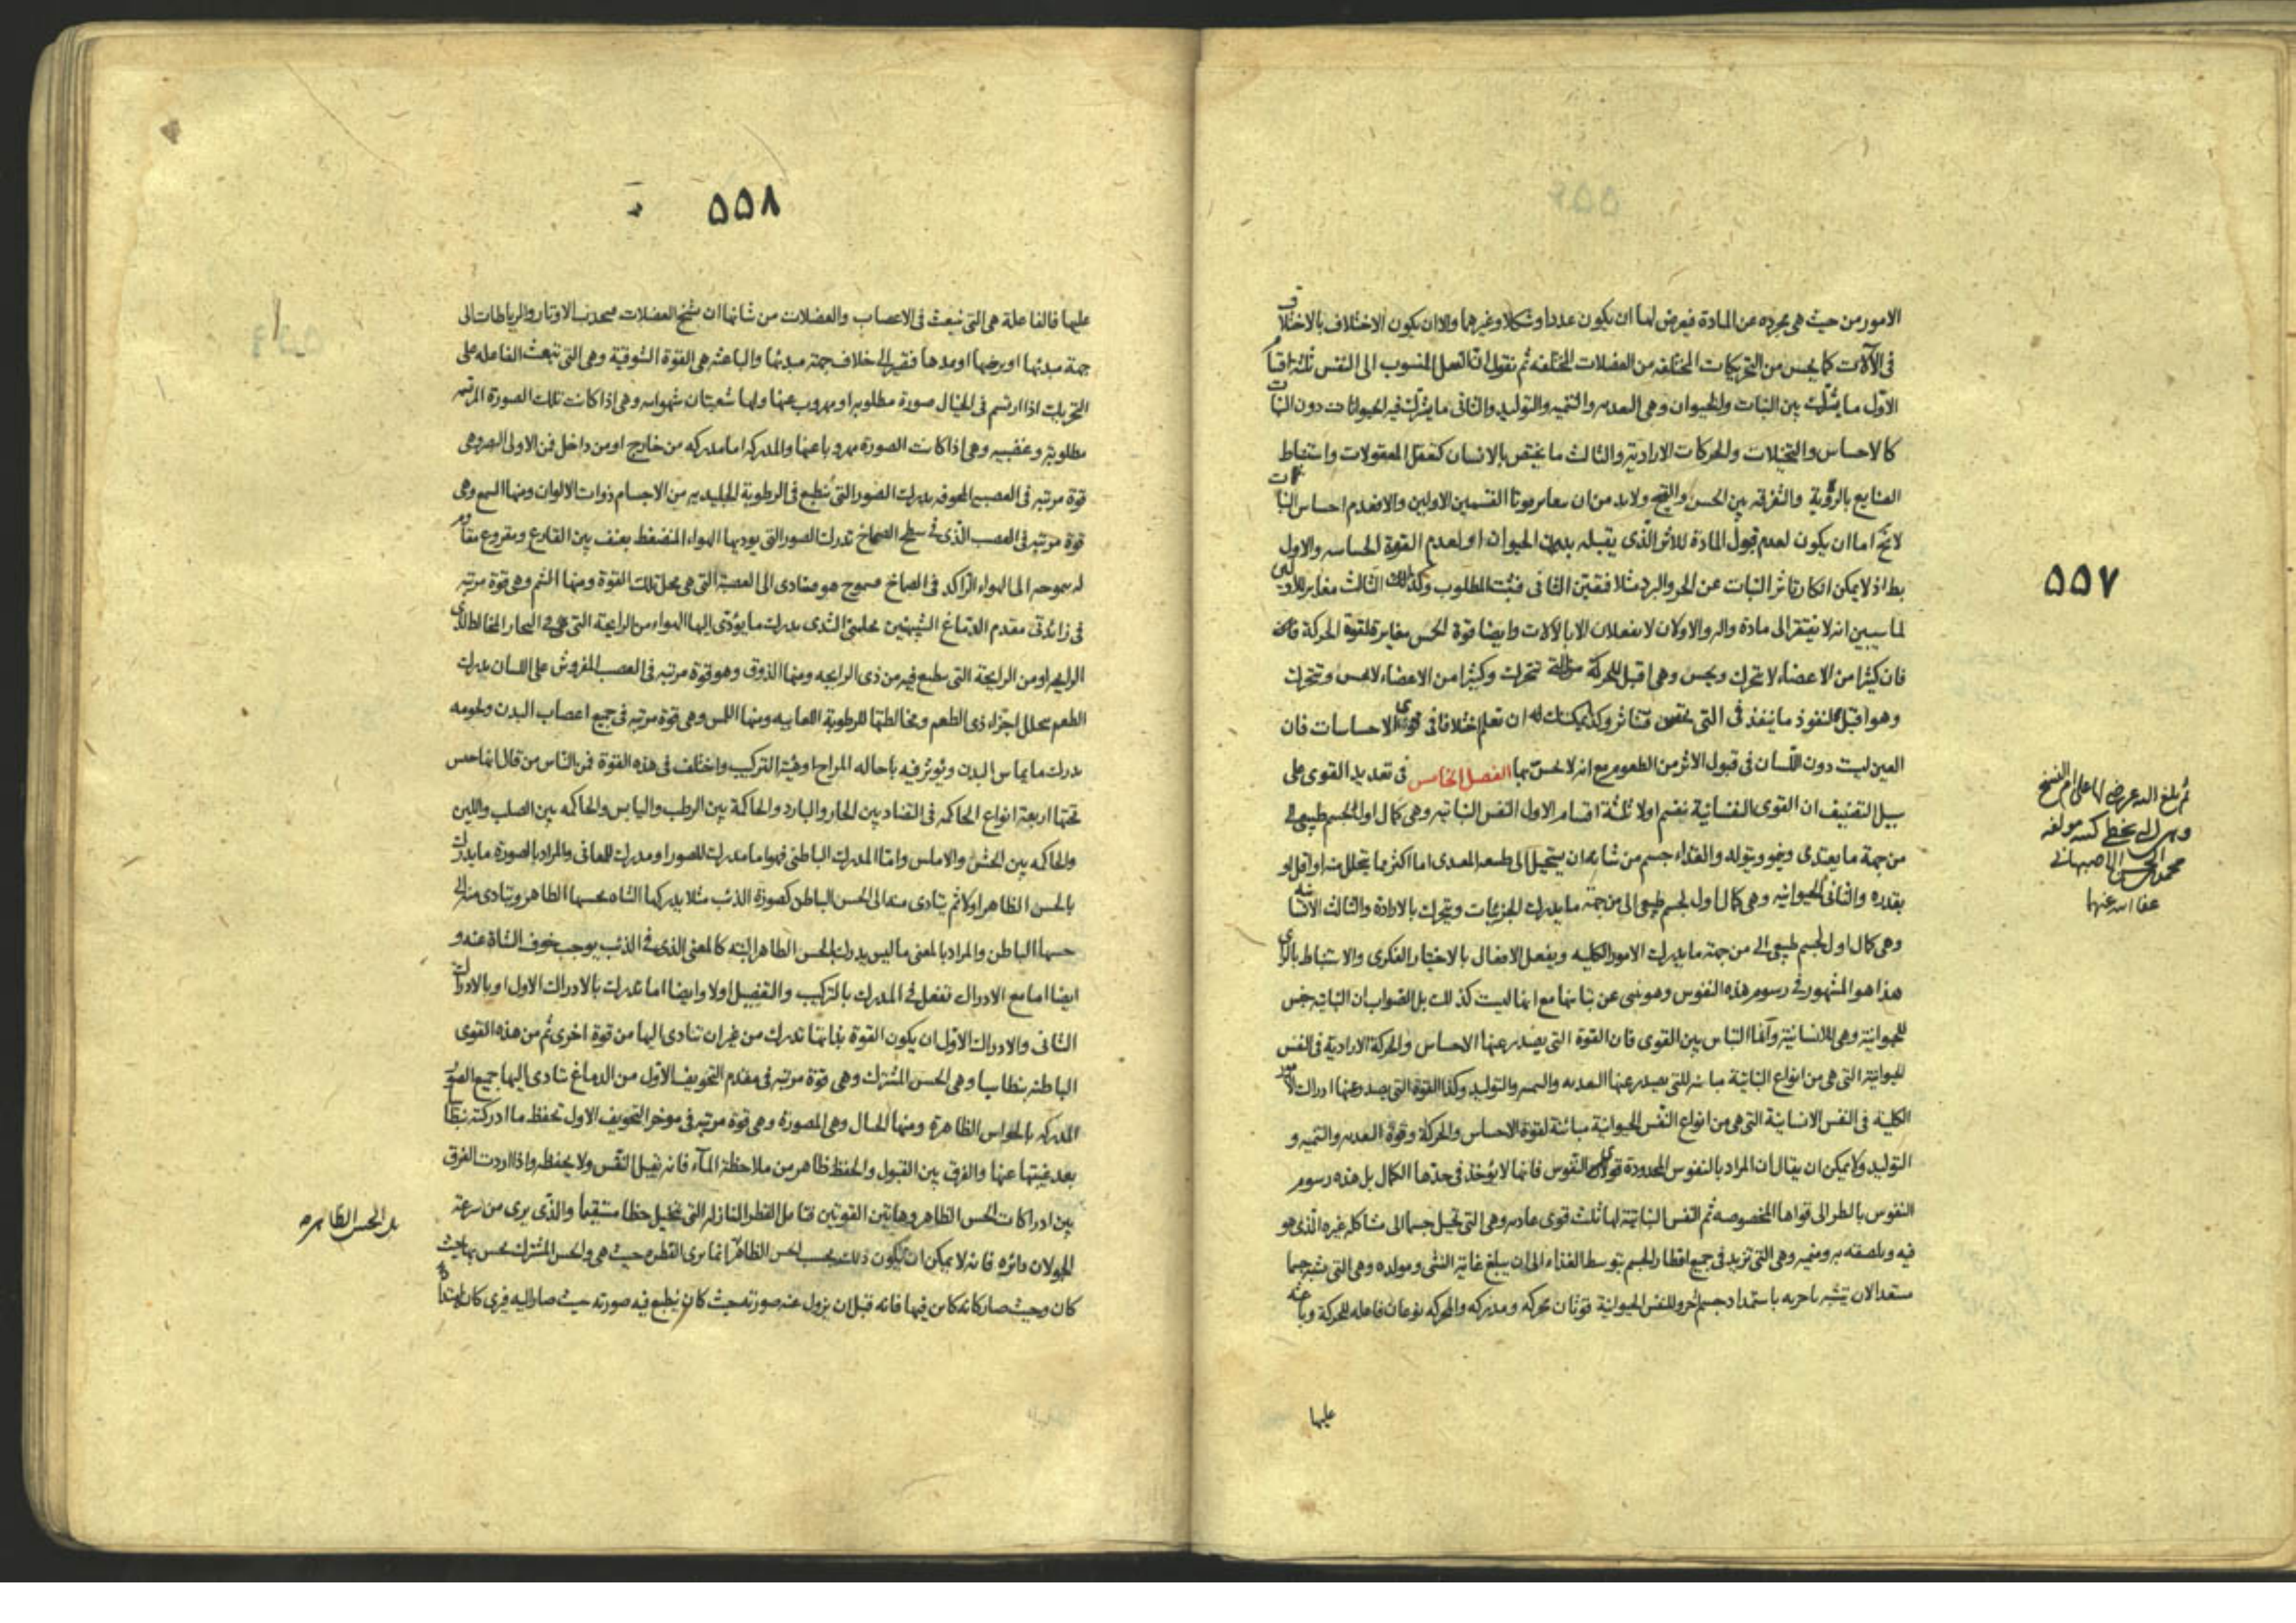 ٥٥٧
الامور من حيث هى مجرده عن المادة فيعرض لها ان يكون عددا وشكلا وغيرهما والا ان يكون الاختلاف بالاختلاف
فى الآلات كما يحس من التحريكات المختلفه من العضلات المختلفه ثم نقول ان الفعل المنسوب الى النفس ثلثة اقسام
الاول ما يشترك بين النبات والحيوان وهى التغذيه والتنميه والتوليد والثانى ما يشترك فيه الحيوانات دون النبات
كالاحساس والتخيلات والحركات الارادية والثالث ما يختص بالانسان كتعقل المعقولات واستنباط
الصنايع بالروية والتفرقه بين الحسن والقبح ولابد من ان القسمين الاولين والا فعدم احساس النبات
لا يخ اما ان يكون لعدم قبول المادة للاثر الذى يقبله بدن الحيوان او لعدم القوة الحساسه والاول
بط اذ لا يمكن انكار تاثر النبات عن الحر والبرد مثلا فتعين الثانى فثبت المطلوب وكذلك الثالث مغاير للاولين
لما سيبين انه لا يفتقر الى مادة والاولان لا يفعلان الا بالالات وايضا قوة الحس مغايرة لقوة الحركة
فان كثيرا من الاعضاء لا تتحرك ويحس وهى اقبل للحركة تتحرك وكثيرا من الاعضاء لا يحس وتتحرك
وهو اقبل لنفوذ ما ينفذ فى التى يحس وكذا يمكنك ان تعلم اختلافا فى قوى الاحساسات فان
العين ليست دون اللسان فى قبول الاثر من الطعوم مع انه لا يحس بها الفصل الخامس فى تعديد القوى على
سبيل التصنيف ان القوى النفسانية ينقسم اولا ثلثة اقسام الاول النفس النباتيه وهى كمال اول لجسم طبيعى الى
من جهة ما يغتذى وينمو ويتولد والغذاء جسم من شانه ان يستحيل الى طبيعه المغتذى اما اكثر مما يتحلل او اقل او
بقدره والثانى الحيوانيه وهى كمال اول لجسم طبيعى الى من جهة ما يدرك الجزئيات ويتحرك بالارادة والثالث الانسانيه
وهى كمال اول لجسم طبيعى الى من جهة ما يدرك الامور الكليه ويفعل الافعال بالاختيار الفكرى والاستنباط بالراى
هذا هو المشهور فى رسوم هذه النفوس وهو ينبى عن تباينها مع انها ليست كذلك بل الصواب ان النباتيه جنس
للحيوانية وهى للانسانية وانما التباين بين القوى فان القوة التى يصدر عنها الاحساس والحركة الارادية فى النفس
الحيوانية التى هى من انواع النباتية مباينه للتى يصدر عنها التغذيه والتنميه والتوليد وكذا القوة التى يصدر عنها ادراك الامور
الكلية فى النفس الانسانية التى هى من انواع النفس الحيوانية مبائنة لقوة الاحساس والحركة وقوة التغذيه والتنميه و
التوليد ولا يمكن ان يقال ان المراد بالنفوس المحدودة قوى النفوس فانها لا يؤخذ فى حدها الكمال بل هذه رسوم
النفوس بالنظر الى قواها المخصوصه ثم النفس النباتية لها ثلث قوى غاذيه وهى التى تحيل جسما الى مشاكله غيره الذى هو
فيه ويلصقه به ومنميه وهى التى تزيد فى جميع اقطار الجسم بتوسط الغذاء الى ان يبلغ غاية النشو ومولده وهى التى
مستعدا لان يتشبه باخر به باستمداد جسم اخر وللنفس الحيوانية قوتان محركه ومدركه والمحركه نوعان فاعله للحركة وباعثه
عليها
محمد بن الحسن الاصبهانى
عفا الله عنهما
٥٥٨
عليها فالفاعلة هى التى تنبعث فى الاعصاب والعضلات من شانها ان تشنج العضلات فيجذب الاوتار والرباطات الى
جهة مبدئها او يرخيها او يمدها فتصير الى خلاف جهة مبدئها والباعثه هى القوة الشوقية وهى التى تبعث الفاعله على
التحريك اذا ارتسم فى الخيال صورة مطلوبه او مهروب عنها ولها شعبتان شهوانيه وهى اذا كانت تلك الصورة المرتسمه
مطلوبة وغضبيه وهى اذا كانت الصورة مهروبا عنها والمدركه اما مدركه من خارج او من داخل فمن الاولى البصر وهى
قوة مرتبه فى العصبه المجوفه يدرك الصور التى ينطبع فى الرطوبة الجليديه من الاجسام ذوات الالوان ومنها السمع وهى
قوة مرتبه فى العصب الذى فى سطح الصماخ تدرك الصور التى يوديها الهواء المنضغط بعنف بين القارع ومقروع مقاوم
له بتموجه الى الهواء الراكد فى الصماخ فيموج هو فيتادى الى العصبة التى هى محل تلك القوة ومنها الشم وهى قوة مرتبه
فى زائدتى مقدم الدماغ الشبيهتين بحلمتى الثدى يدرك ما يؤدى اليها الهواء من الرايحة التى هى فى البخار المخالط لذى
الرايحه او من الرايحة التى ينطبع فيه من ذى الرايحه ومنها الذوق وهو قوة مرتبه فى العصب المفروش على اللسان يدرك
الطعم بتحلل اجزاء ذى الطعم ومخالطتها للرطوبة اللعابيه ومنها اللمس وهى قوة مرتبه فى جميع اعصاب البدن ولحومه
يدرك ما يماس البدن ويؤثر فيه باحاله المزاج او هيئة التركيب واختلف فى هذه القوة فمن الناس من قال انها جنس
تحتها اربعة انواع الحاكمه فى التضاد بين الحار والبارد والحاكمة بين الرطب واليابس والحاكمه بين الصلب واللين
والحاكمه بين الخشن والاملس واما المدرك الباطنى فهو اما مدرك للصور او مدرك للمعانى والمراد بالصورة ما يدرك
بالحس الظاهر اولا ثم يتادى منه الى الحس الباطن كصورة الذئب مثلا يدركها الشاه بحسها الظاهر ويتادى منه الى
حسها الباطن والمراد بالمعنى ما ليس يدرك بالحس الظاهر البته كالمعنى الذى فى الذئب يوجب خوف الشاة عنه و
ايضا اما مع الادراك تفعل فى المدرك بالتركيب والتفصيل اولا وايضا اما تدرك بالادراك الاول او بالادراك
الثانى والادراك الاول ان يكون القوة بذاتها تدرك من غير ان يتادى اليها من قوة اخرى ثم من هذه القوى
الباطنه بنطاسيا وهى الحس المشترك وهى قوة مرتبه فى مقدم التجويف الاول من الدماغ يتادى اليها جميع الصور
المدركه بالحواس الظاهرة ومنها الخيال وهى المصورة وهى قوة مرتبه فى موخر التجويف الاول تحفظ ما ادركته بنطاسيا
بعد غيبتها عنها والفرق بين القبول والحفظ ظاهر من ملاحظة المآء فانه يقبل النقش ولا يحفظه واذا اردت الفرق
بين ادراكات الحس الظاهر وهاتين القوتين فتامل القطر النازله التى تتخيل خطا مستقيما والذى يرى من سرعة
الجولان دائرة فانه لا يمكن ان يكون ذلك بحسب الحس الظاهر انما يرى القطره حيث هى والحس المشترك يحس بها حيث
كان وحيث صار كانه كاين فيها فانه قبل ان يزول عنه صورته حيث كان ينطبع فيه صورته حيث صار اليه فيرى كان ممتدا
الحس الظاهره